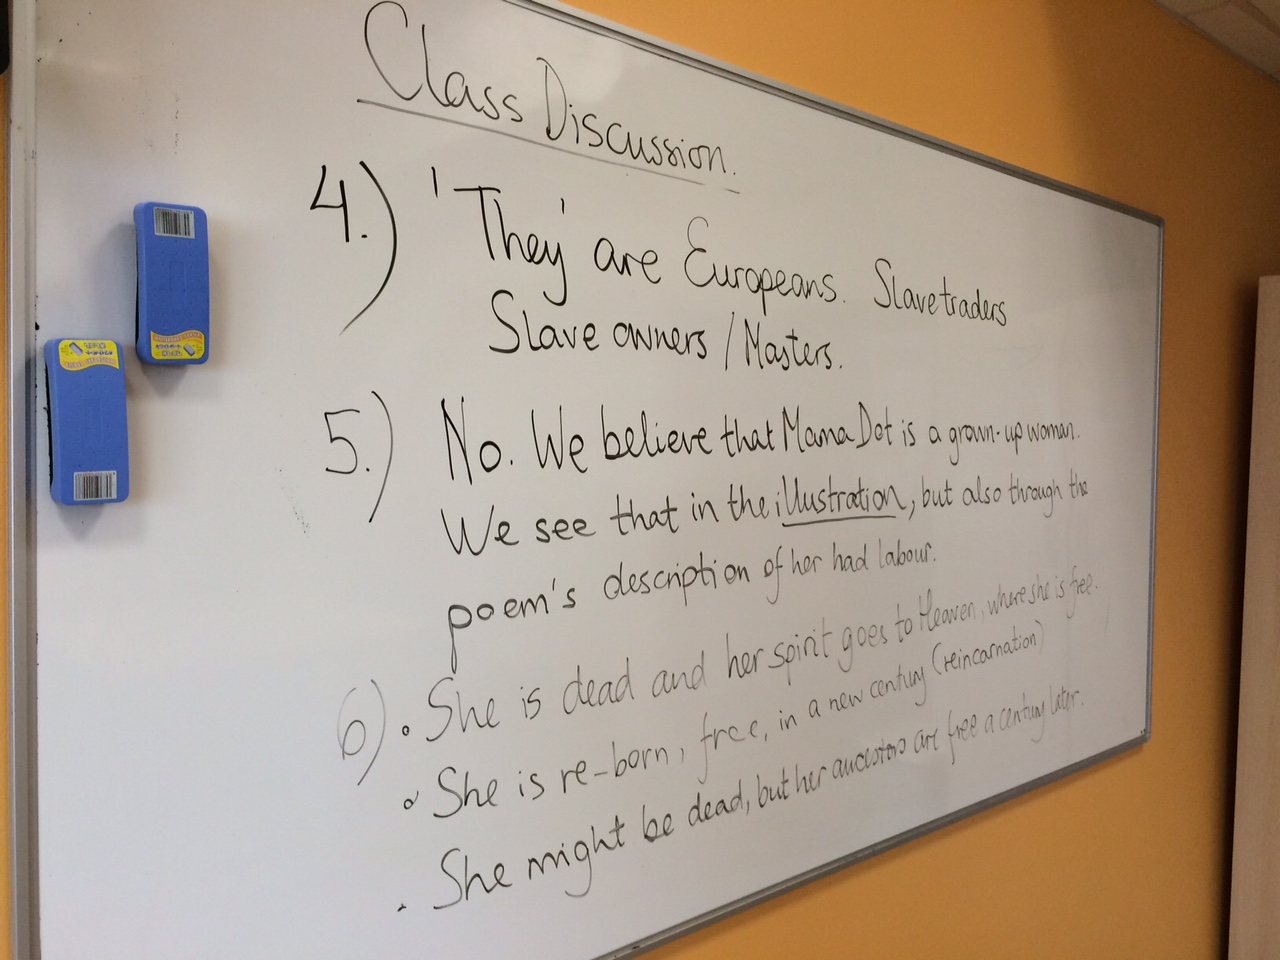 Class Discussion.
4.) 'They' are Europeans. Slavetraders
Slave owners / Masters.
5.) No. We believe that Mama Dot is a grown-up woman.
We see that in the illustration, but also through the
poem's description of her had labour.
6) • She is dead and her spirit goes to Heaven, where she is free.
• She is re-born, free, in a new century (reincarnation)
• She might be dead, but her ancestors are free a century later.